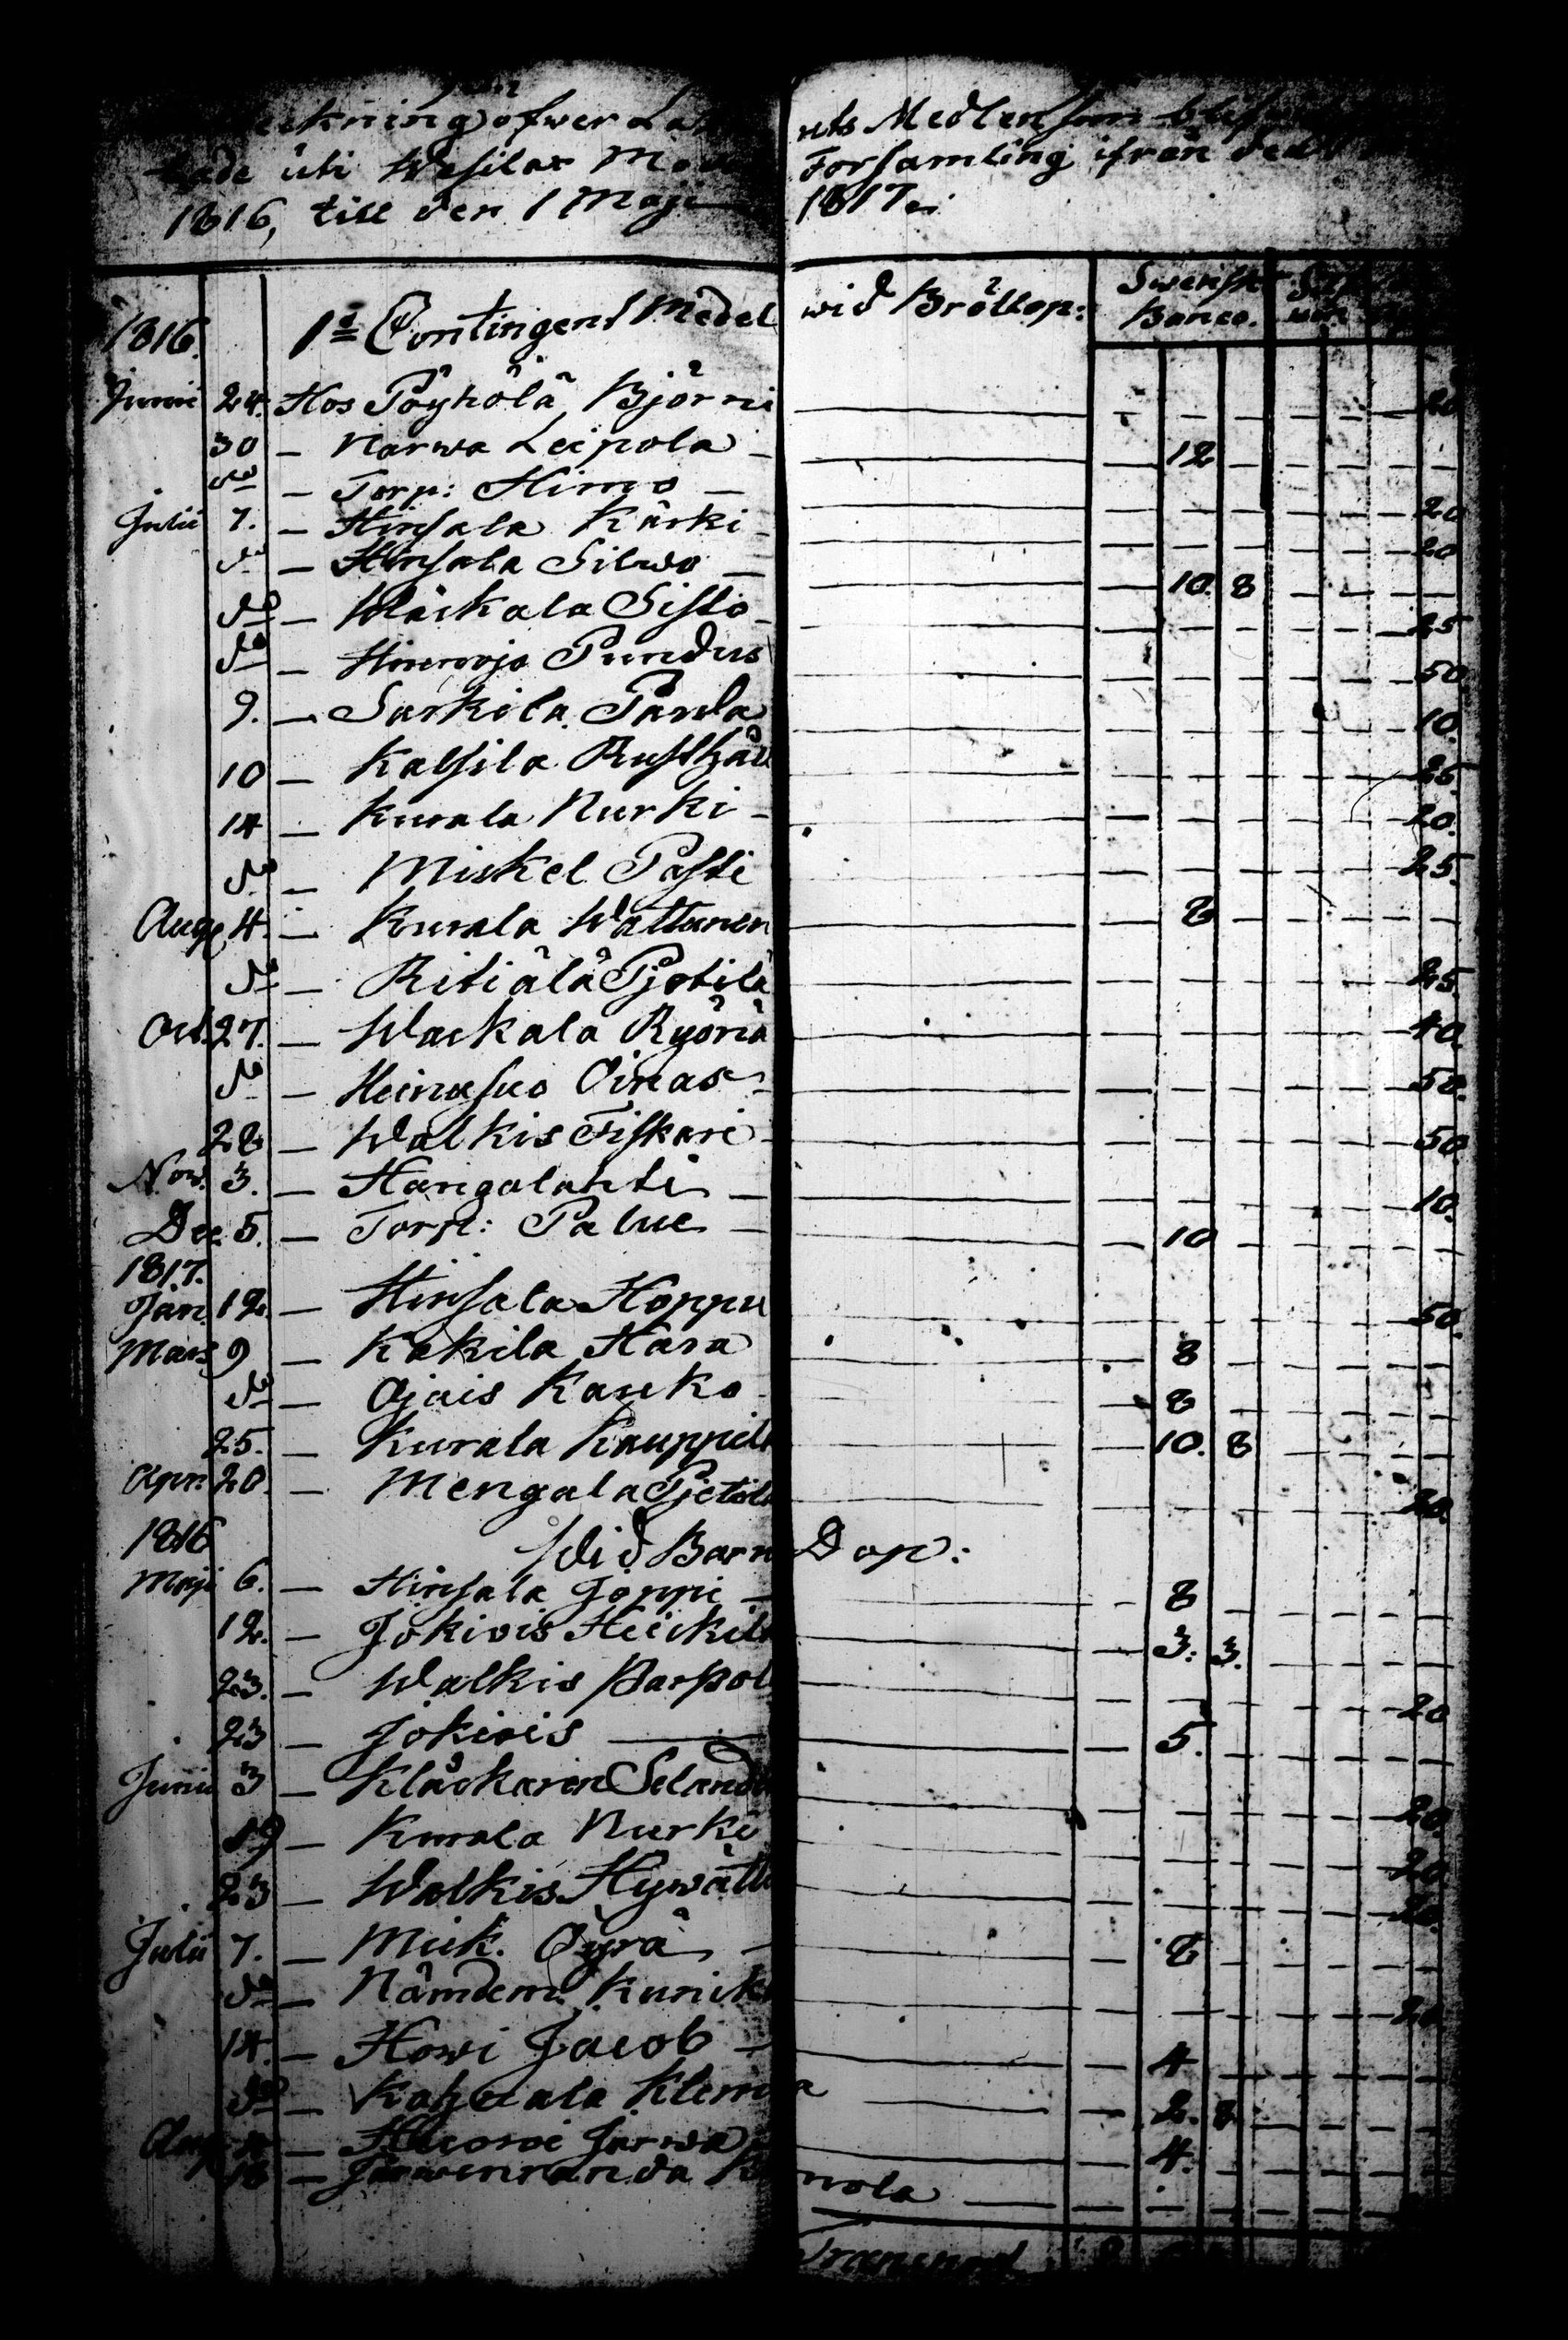 ckning öfwer
nts Medlen som
lade uti Wesilax
Forsamling ifrån den
1816, till den 1 Maji
1817.
1816. 1:a Contingent Medel wid Bröllop: Swenskt Banco.
Junii 24. Hos Pöyhölä Björni — — — — — — 20
30 — Narwa Leipola — — 12 — — — — —
do — Torp: Himo —
Julii 7. — Hinsala Kärki — — — — — — 20
do — Hinsala Silwo — — — — — — 20
do — Wäckala Sisto — — 10. 8 — — — —
do — Pundus — — — — — — 25
9. — Sarkila Panda — — — — — — 50
10 — Kalsila Rusthåll — — — — — — 10.
14 — Kurala Nurki — — — — — — 25
do — Miskel Passi — — — — — — 20.
Aug. 4. — Kurala Wattunen — — — — — — 25.
8 — — — — —
do — Ritiälä Pjetilä — — — — — — 25
Oct. 27. — Wackala Ryöriä — — — — — — 40.
do — Heinasuo Oinas — — — — — — 50.
28 — Walkis Fiskari — — — — — — 50
Now. 3. — Hangalahti — — — — — — 10.
Dec. 5. — Torp: Palue — — 10 — — — — —
1817.
Jan. 12. — Hinsala Hoppu — — — — — — 50.
Mars 9 — Kakila Hara — — 8 — — — — —
do — Ojais Kauko — 8 — — — — —
25. — Kurala Kauppila — — 10. 8 — — — —
Apr. 20. — Mengala Pjetola — — — — — — 20.
1816 Wid Barn Dop:
Maji 6. — Hinsala Joppi — — 8 — — — — —
12. — Jokiois Heickilä — — 3: 3. — — — —
23. — Walkis Parpol — — — — — — 20
23 — Jokiois — — 5. — — — — —
Junii 3 — Klåckaren Seland — — — — — — 20
19 — Kurala Nurki — — — — — — 20
23 — Walkis Hywätt — — — — — — 20.
Julii 7. — Misk. Öyrä — — 8 — — — — —
do — Nämdem. Kunik — — — — — — 20
14. — Howi Jacob — — 4 — — — — —
do — Klem a — — 2. 8 — — — —
Aug. — Jarwa — — 4. — — — — —
18 — Jarwenranda nola — — — — — —